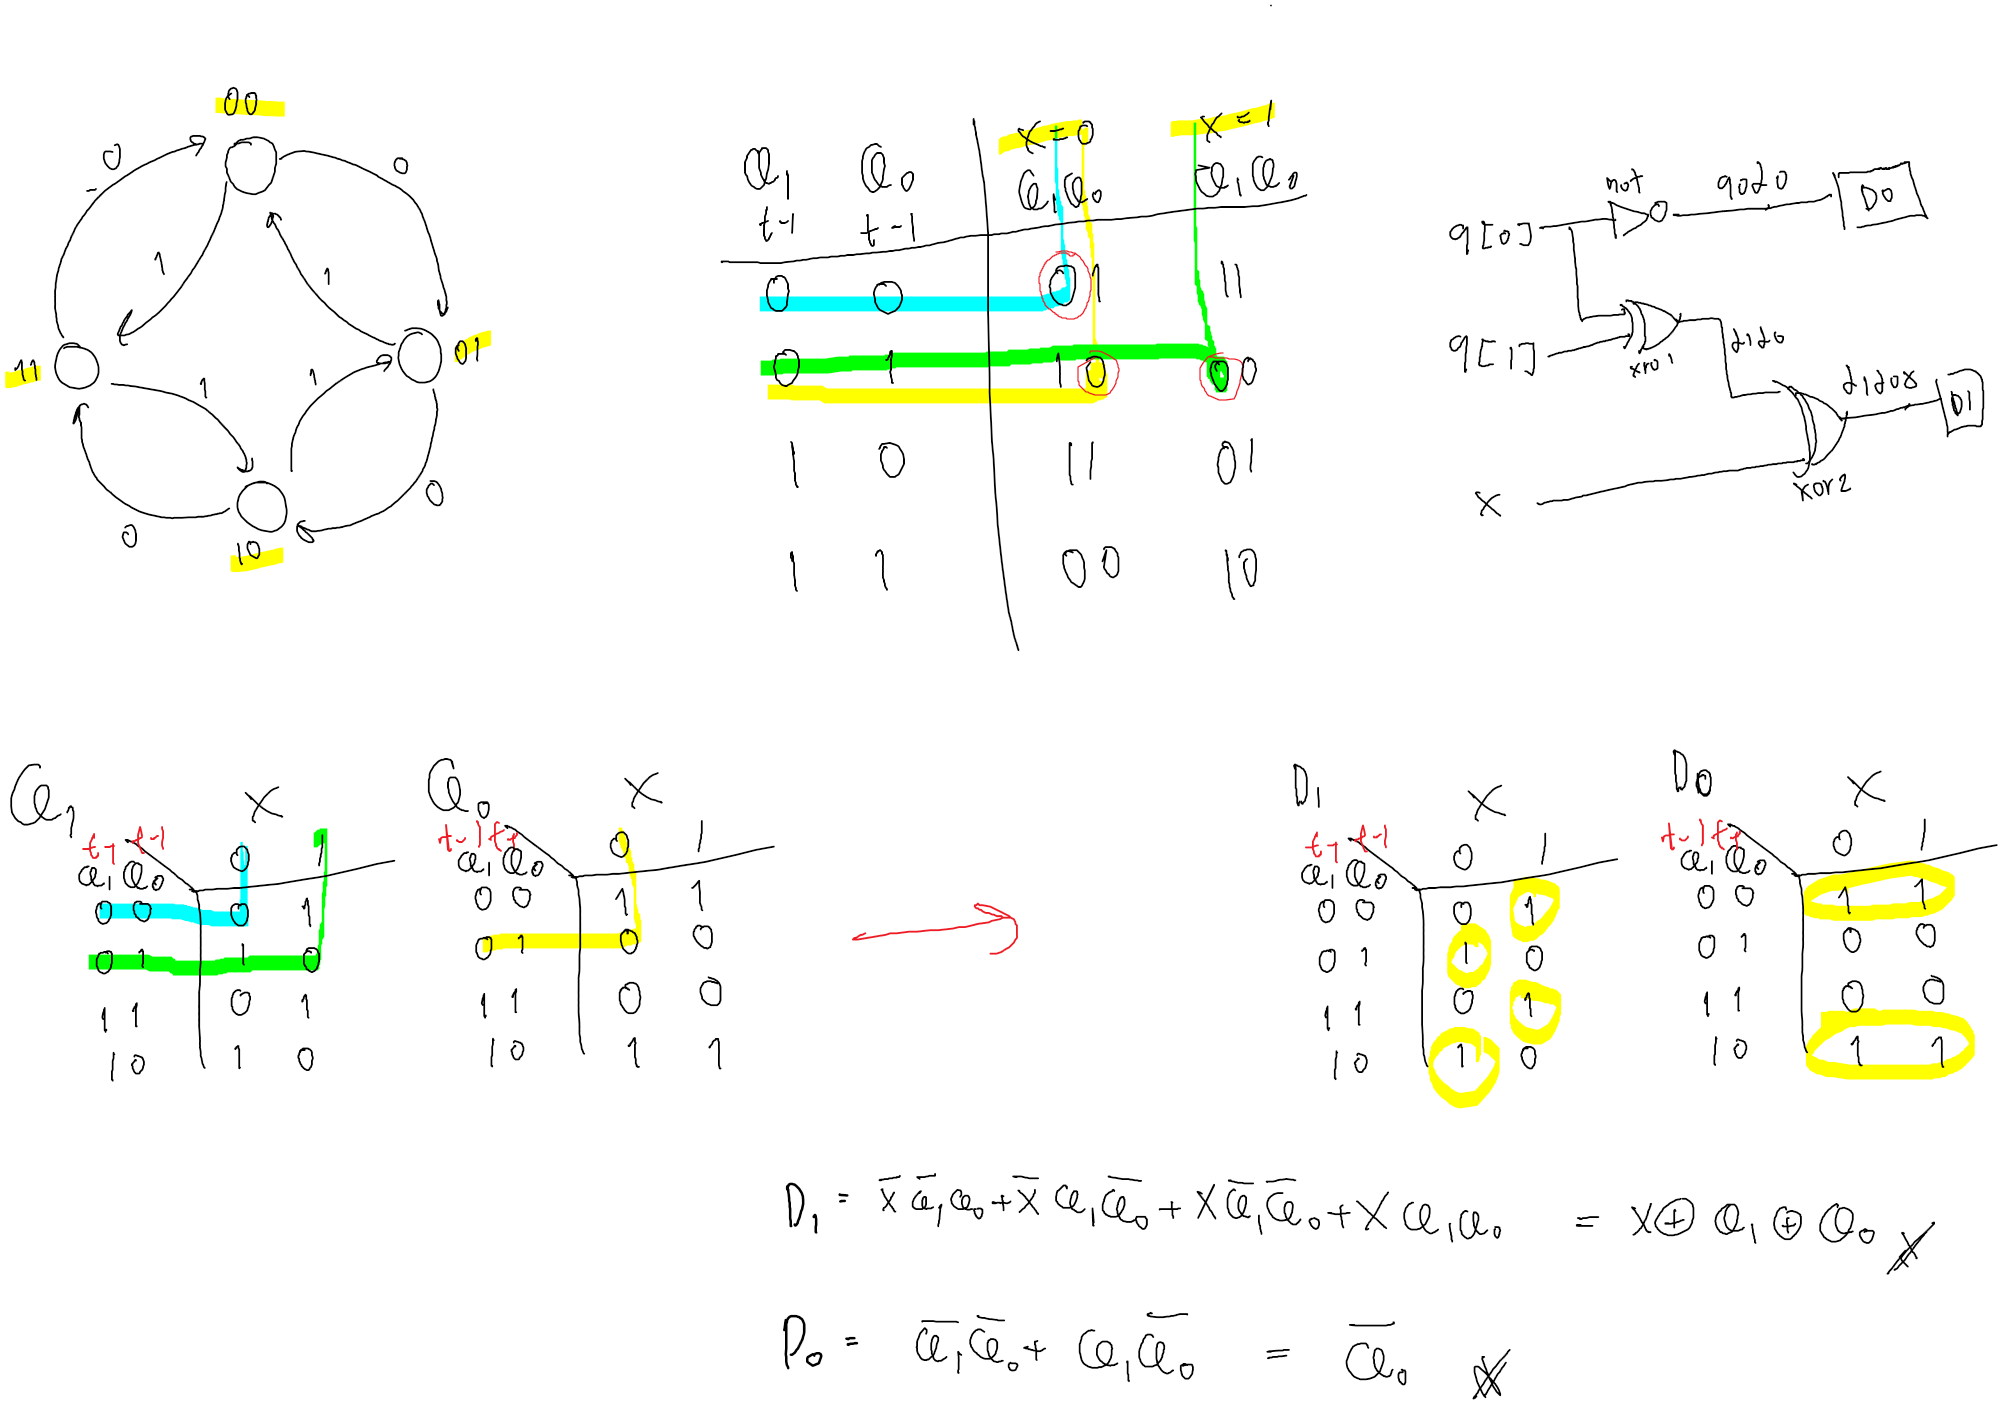 00
0
0
1
1
11
01
1
1
0
0
10
x=0 x=1
Q1 Q0 Q1Q0 Q1Q0
t-1 t-1
0 0 01 11
0 1 10 00
1 0 11 01
1 1 00 10
not q0d0 D0
q[0]
q[1] xro1 d1d0
d1d0x D1
x xor2
Q1 X
t-1 t-1 0 1
Q1Q0
00 0 1
01 1 0
11 0 1
10 1 0
Q0 X
t-1 t-1 0 1
Q1Q0
00 1 1
01 0 0
11 0 0
10 1 1
D1 X
t-1 t-1 0 1
Q1Q0
00 0 1
01 1 0
11 0 1
10 1 0
D0 X
t-1 t-1 0 1
Q1Q0
00 1 1
01 0 0
11 0 0
10 1 1
D1 = X̅Q̅1Q0+X̅Q1Q̅0+XQ̅1Q̅0+XQ1Q0 = X⊕Q1⊕Q0
D0 = Q̅1Q̅0+Q1Q̅0 = Q̅0